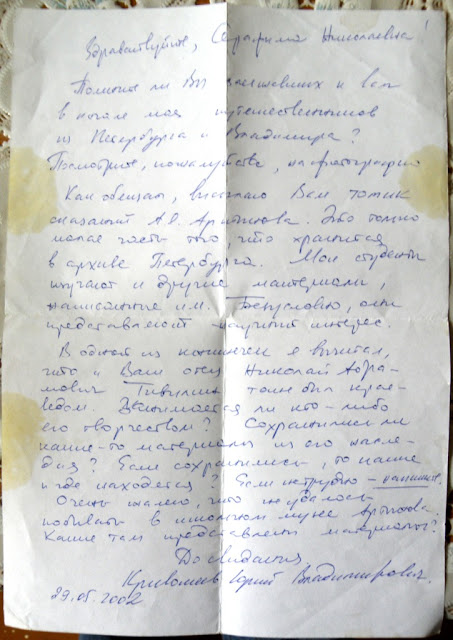 Здравствуйте, Серафима Николаевна!
Помните ли Вы заезжавших к вам
в начале мая путешественников
из Петербурга и Владимира?
Посмотрите, пожалуйста, на фотографию
Как обещал, высылаю Вам томик
сказаний А.Д. Это только
малая часть того, что хранится
в архиве Петербурга. Мои студенты
изучают и другие материалы,
написанные им. Безусловно, они
представляют научный интерес.
В одной из книжечек я вычитал,
что и Ваш отец Николай Абра-
мович тоже был крае-
ведом. Занимается ли кто-либо
его творчеством? Сохранились ли
какие-то материалы из его насле-
дия? Если сохранились, то какие
и где находятся? Если нетрудно – напишите.
Очень жалею, что не удалось
побывать в школьном музее
Какие там представлены материалы?
До свидания
Юрий Владимирович.
29.05.2002